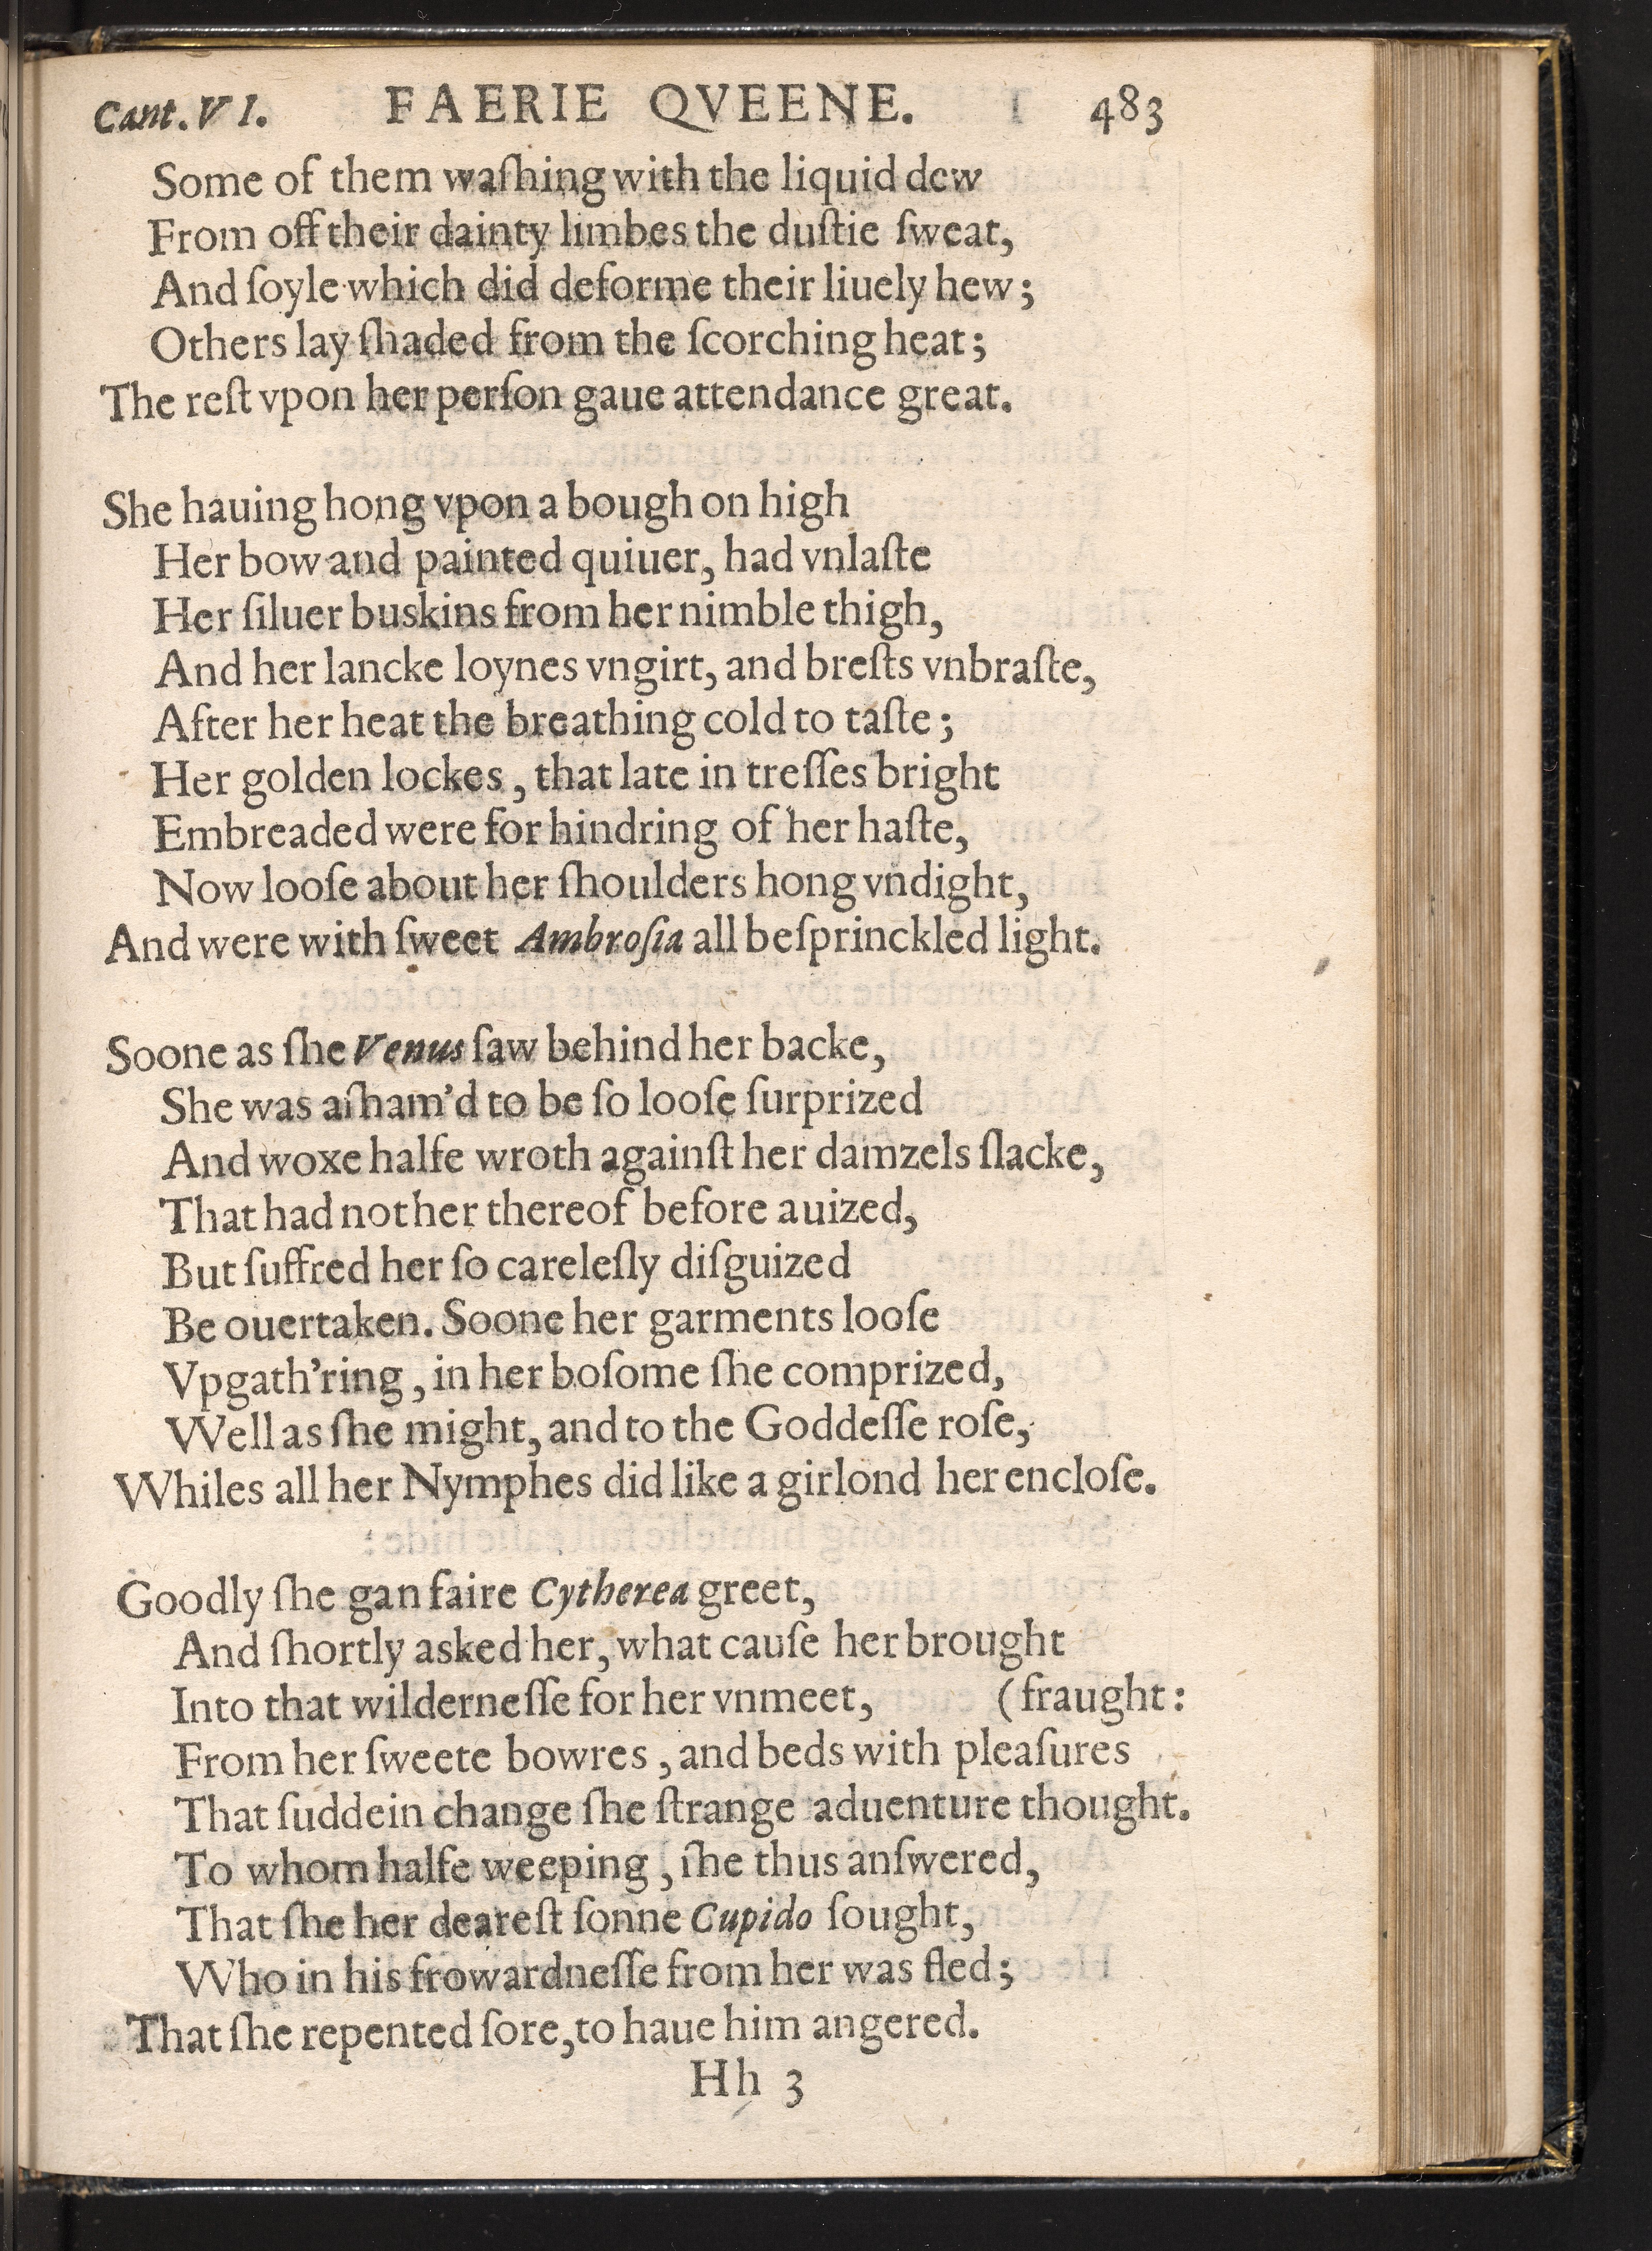 Cant. VI. FAERIE QVEENE. 483
Some of them waſhing with the liquid dew
From off their dainty limbes the duſtie ſweat,
And ſoyle which did deforme their liuely hew;
Others lay ſhaded from the ſcorching heat;
The reſt vpon her perſon gaue attendance great.
She hauing hong vpon a bough on high
Her bow and painted quiuer, had vnlaſte
Her ſiluer buskins from her nimble thigh,
And her lancke loynes vngirt, and breſts vnbraſte,
After her heat the breathing cold to taſte;
Her golden lockes, that late in treſſes bright
Embreaded were for hindring of her haſte,
Now looſe about her ſhoulders hong vndight,
And were with ſweet Ambroſia all beſprinckled light.
Soone as ſhe Venus ſaw behind her backe,
She was aſham'd to be ſo looſe ſurprized
And woxe halfe wroth againſt her damzels ſlacke,
That had not her thereof before auized,
But ſuffred her ſo careleſly diſguized
Be ouertaken. Soone her garments looſe
Vpgath'ring, in her boſome ſhe comprized,
Well as ſhe might, and to the Goddeſſe roſe,
Whiles all her Nymphes did like a girlond her encloſe.
Goodly ſhe gan faire Cytherea greet,
And ſhortly asked her, what cauſe her brought
Into that wilderneſſe for her vnmeet, (fraught:
From her ſweete bowres, and beds with pleaſures
That ſuddein change ſhe ſtrange aduenture thought.
To whom halfe weeping, ſhe thus anſwered,
That ſhe her deareſt ſonne Cupido ſought,
Who in his frowardneſſe from her was fled;
That ſhe repented ſore, to haue him angered.
Hh 3